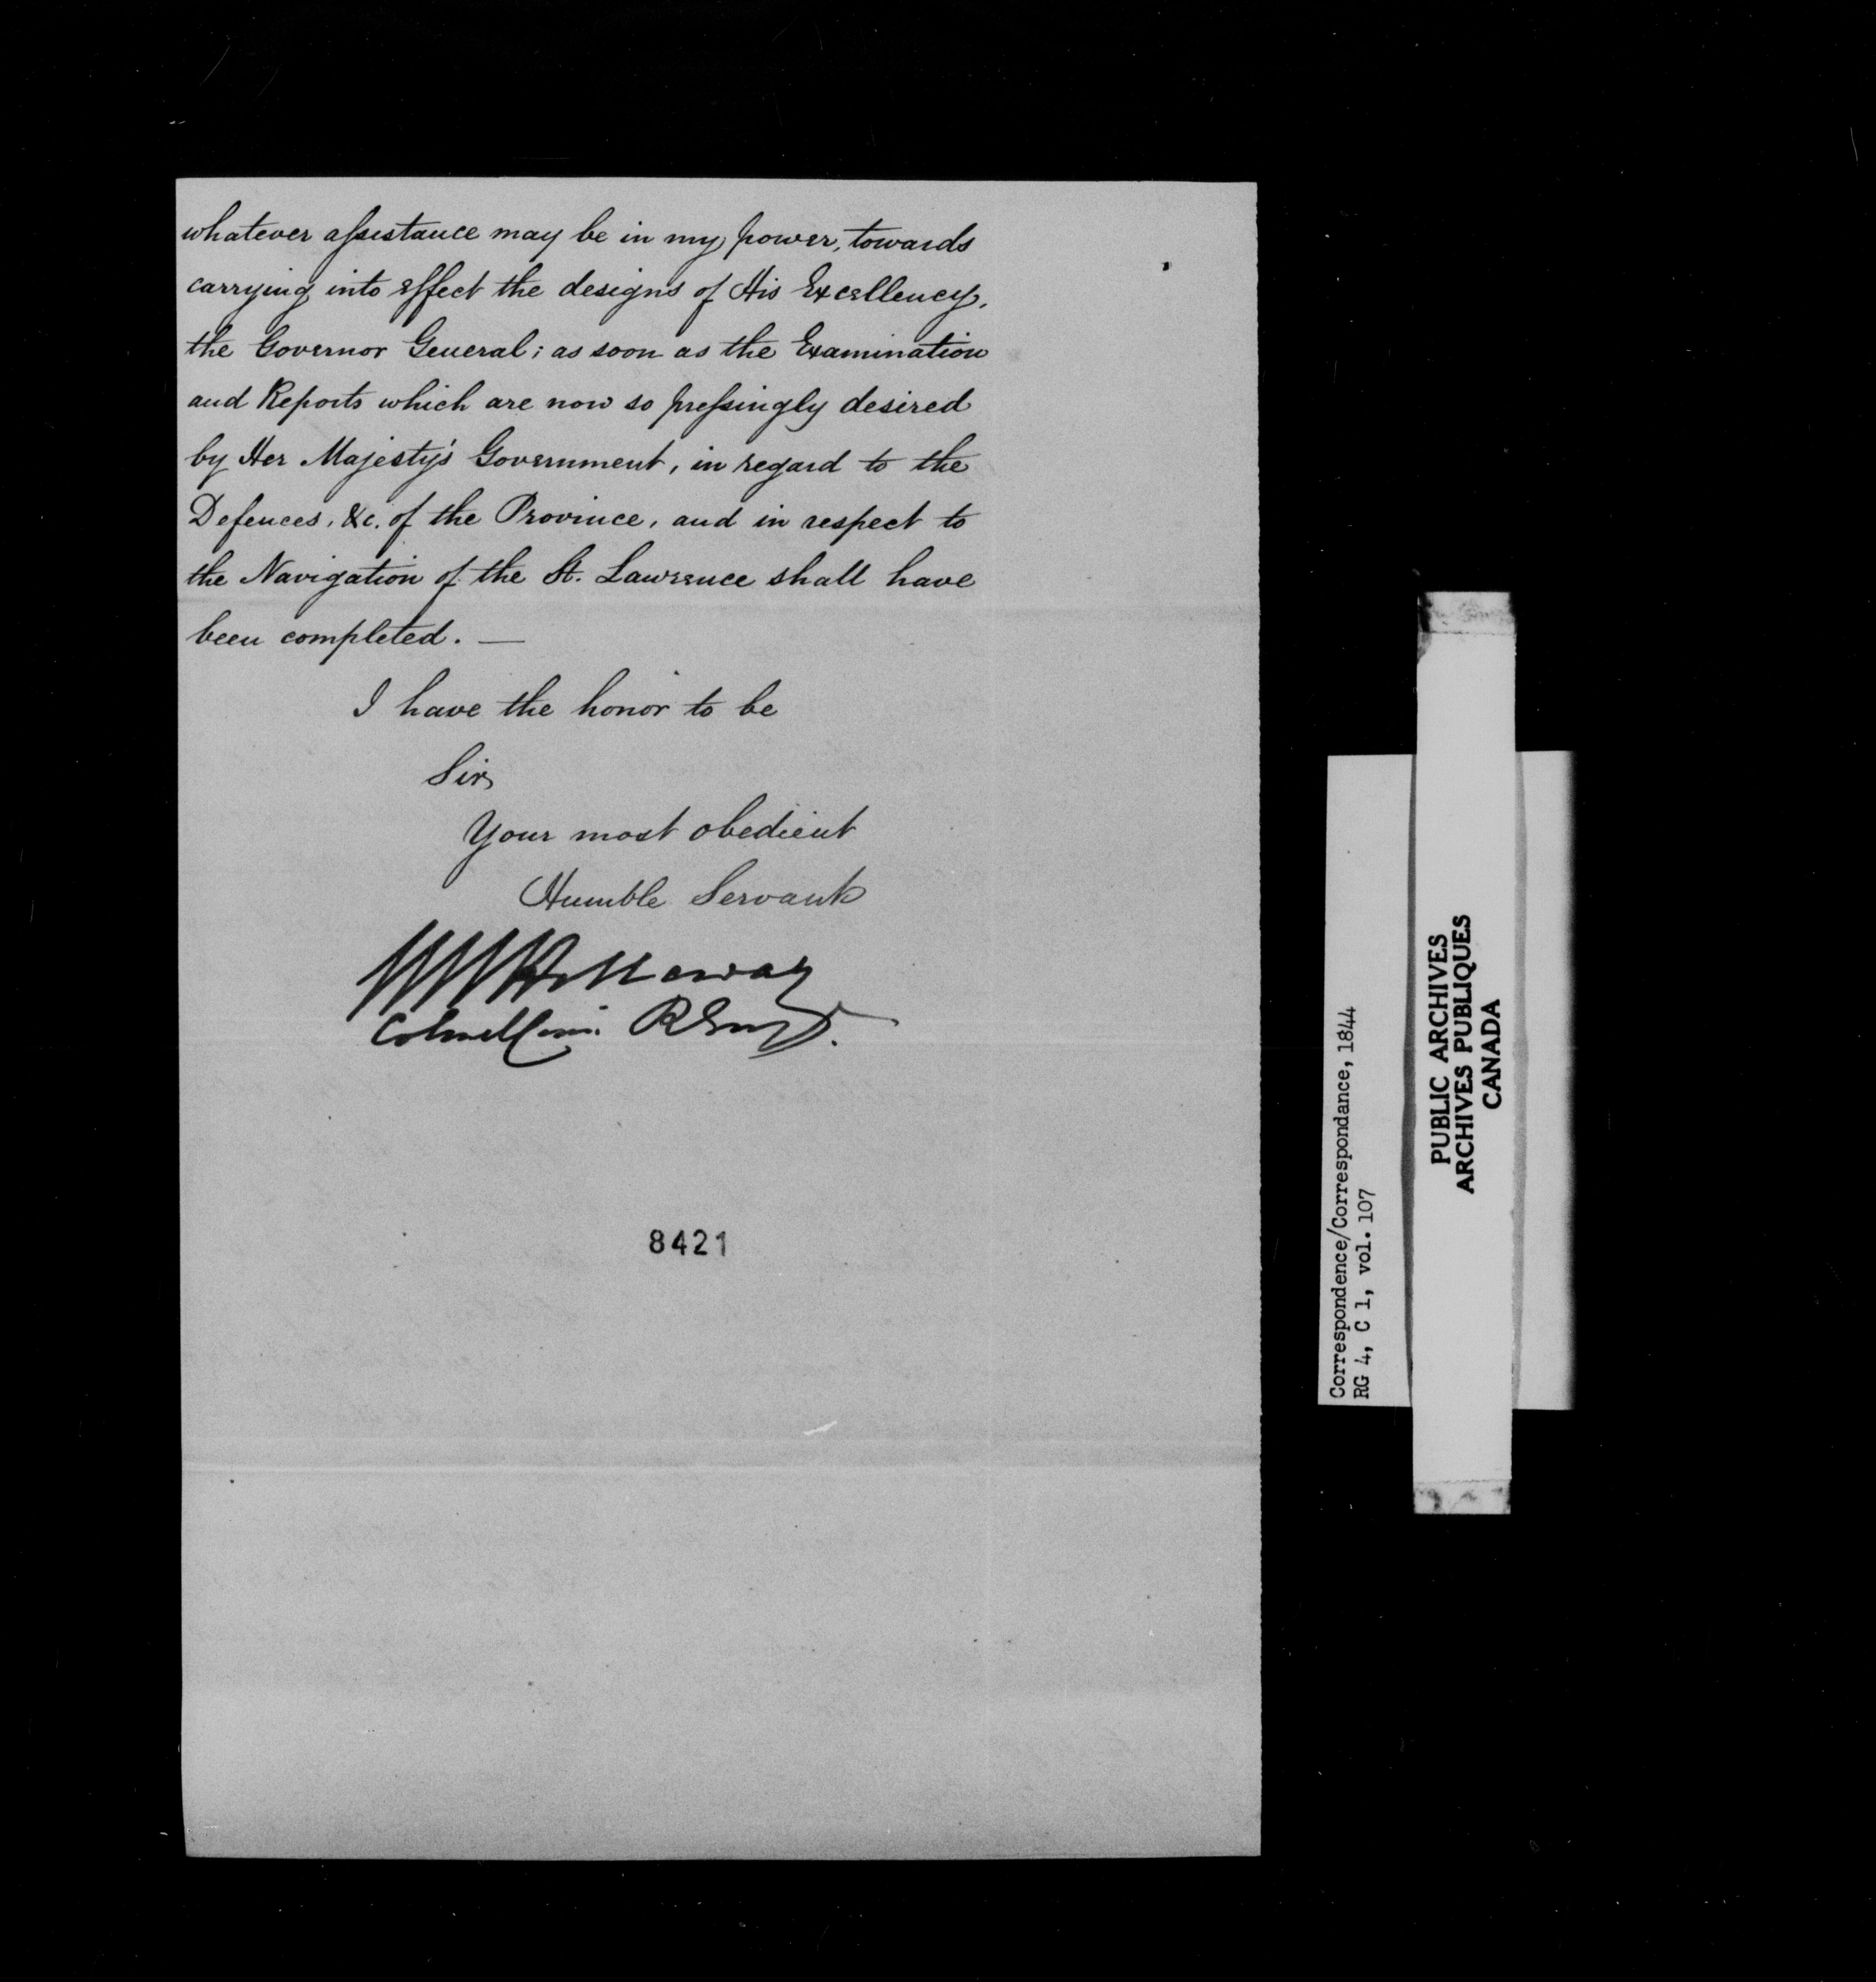 whatever assistance may be in my power, towards
carrying into effect the designs of His Excellency,
the Governor General; as soon as the Examination
and Reports which are now so pressingly desired
by Her Majesty's Government, in regard to the
Defences, &c. of the Province, and in respect to
the Navigation of the St. Lawrence shall have
been completed. —
I have the honor to be
Sir,
Your most obedient
Humble Servant
Holloway
Colonel R Eng
8421
Correspondence/Correspondance, 1844
RG 4, C 1, vol. 107
PUBLIC ARCHIVES
ARCHIVES PUBLIQUES
CANADA